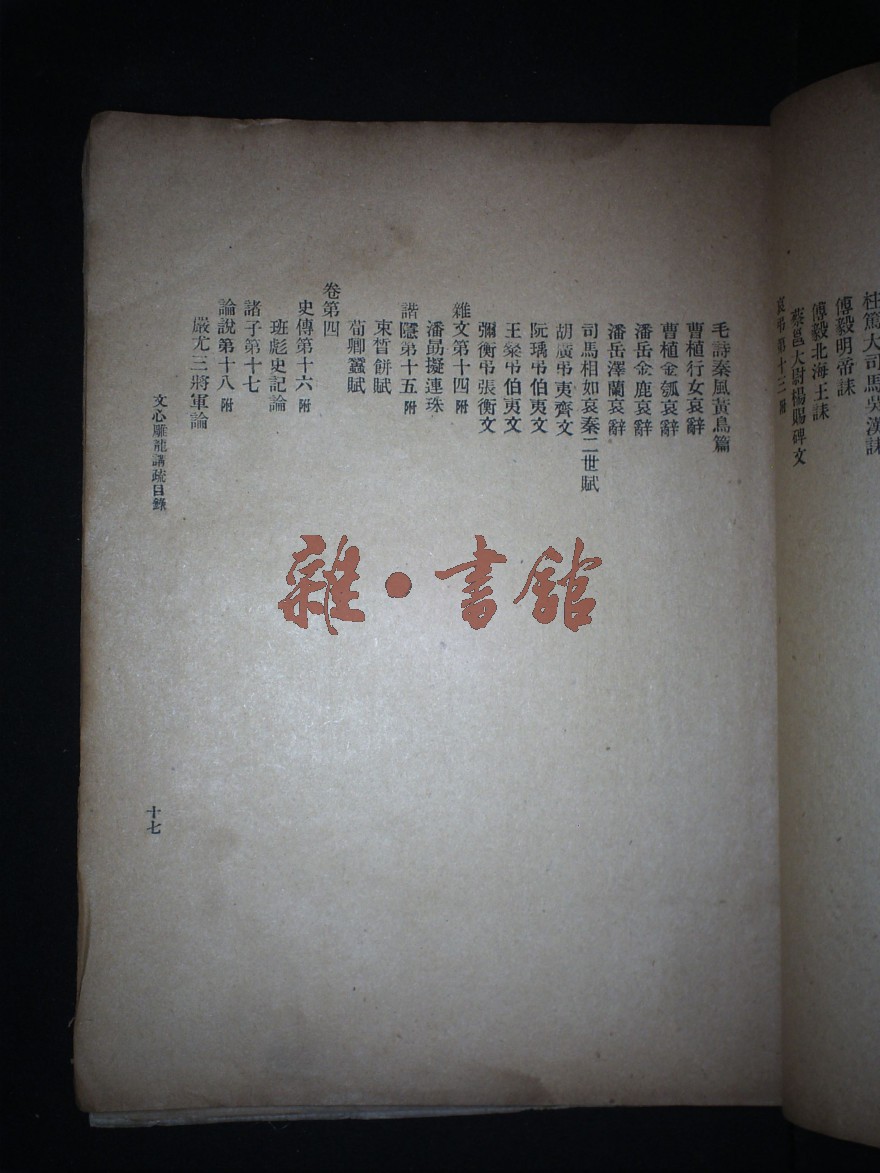 杜篤大司馬吳漢誄
傅毅明帝誄
傅毅北海王誄
蔡邕大尉楊賜碑文
哀弔第十三附
毛詩秦風黃鳥篇
曹植行女哀辭
曹植金瓠哀辭
潘岳金鹿哀辭
潘岳澤蘭哀辭
司馬相如哀秦二世賦
胡廣弔夷齊文
阮瑀弔伯夷文
王粲弔伯夷文
彌衡弔張衡文
雜文第十四附
潘勗擬連珠
諧隱第十五附
束皙餅賦
荀卿蠶賦
卷第四
史傳第十六附
班彪史記論
諸子第十七
論說第十八附
嚴尤三將軍論
文心雕龍講疏目錄
十七
雜·書館